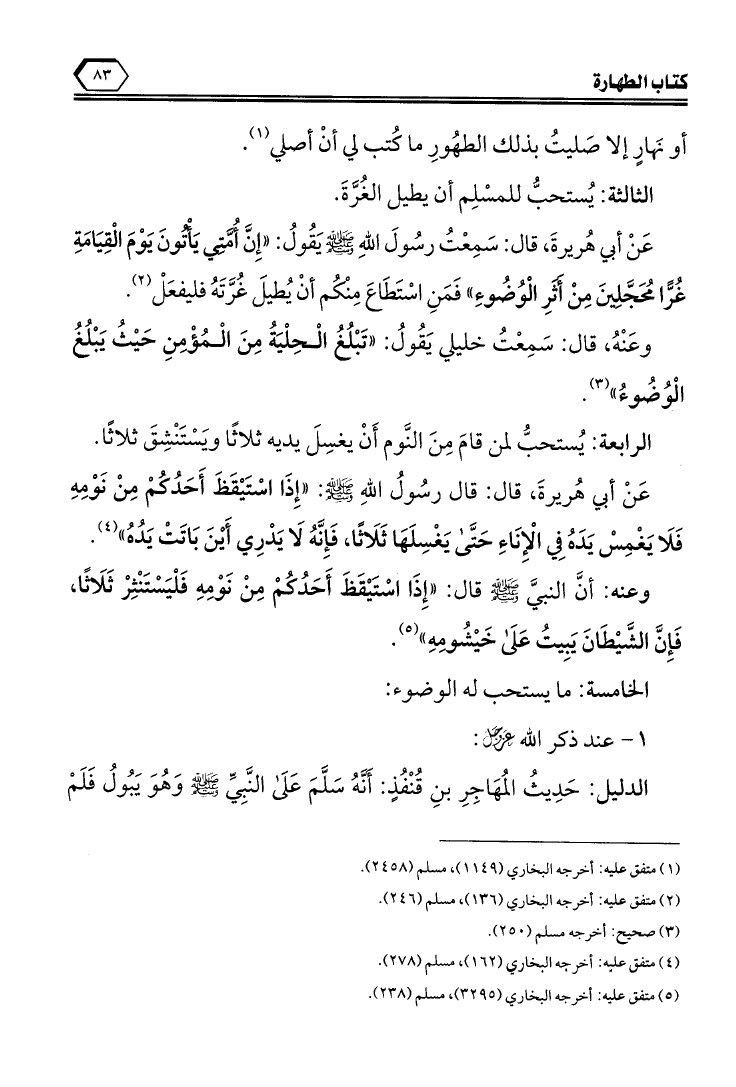 كتاب الطهارة
٨٣
أو نهارٍ إلا صَليتُ بذلك الطهُورِ ما كُتب لي أنْ أصلي(١).
الثالثة: يُستحبُّ للمسْلِم أن يطيل الغُرَّةَ.
عَنْ أبي هُريرةَ، قال: سَمِعْتُ رسُولَ اللهِ ﷺ يَقُولُ: «إِنَّ أُمَّتِي يَأْتُونَ يَوْمَ الْقِيَامَةِ
غُرًّا مُحَجَّلِينَ مِنْ أَثَرِ الْوُضُوءِ» فَمَنِ اسْتَطَاعَ مِنْكُم أنْ يُطيلَ غُرَّتَهُ فليفعَلْ(٢).
وعَنْهُ، قال: سَمِعْتُ خليلي يَقُولُ: «تَبْلُغُ الْـحِلْيَةُ مِنَ الْـمُؤْمِنِ حَيْثُ يَبْلُغُ
الْوُضُوءُ»(٣).
الرابعة: يُستحبُّ لمن قامَ مِنَ النَّوم أنْ يغسِلَ يديه ثلاثًا ويَسْتَنْشِقَ ثلاثًا.
عَنْ أبي هُريرةَ، قال: قال رسُولُ اللهِ ﷺ: «إِذَا اسْتَيْقَظَ أَحَدُكُمْ مِنْ نَوْمِهِ
فَلَا يَغْمِسْ يَدَهُ فِي الْإِنَاءِ حَتَّىٰ يَغْسِلَهَا ثَلَاثًا، فَإِنَّهُ لَا يَدْرِي أَيْنَ بَاتَتْ يَدُهُ»(٤).
وعنه: أنَّ النبيَّ ﷺ قال: «إِذَا اسْتَيْقَظَ أَحَدُكُمْ مِنْ نَوْمِهِ فَلْيَسْتَنْثِرْ ثَلَاثًا،
فَإِنَّ الشَّيْطَانَ يَبِيتُ عَلَىٰ خَيْشُومِهِ»(٥).
الخامسة: ما يستحب له الوضوء:
١- عند ذكر الله عَزَّوَجَلَّ:
الدليل: حَدِيثُ المُهَاجِرِ بنِ قُنْفُذٍ: أَنَّهُ سَلَّمَ عَلَىٰ النَّبِيِّ ﷺ وَهُوَ يَبُولُ فَلَمْ
(١) متفق عليه: أخرجه البخاري (١١٤٩)، مسلم (٢٤٥٨).
(٢) متفق عليه: أخرجه البخاري (١٣٦)، مسلم (٢٤٦).
(٣) صحيح: أخرجه مسلم (٢٥٠).
(٤) متفق عليه: أخرجه البخاري (١٦٢)، مسلم (٢٧٨).
(٥) متفق عليه: أخرجه البخاري (٣٢٩٥)، مسلم (٢٣٨).